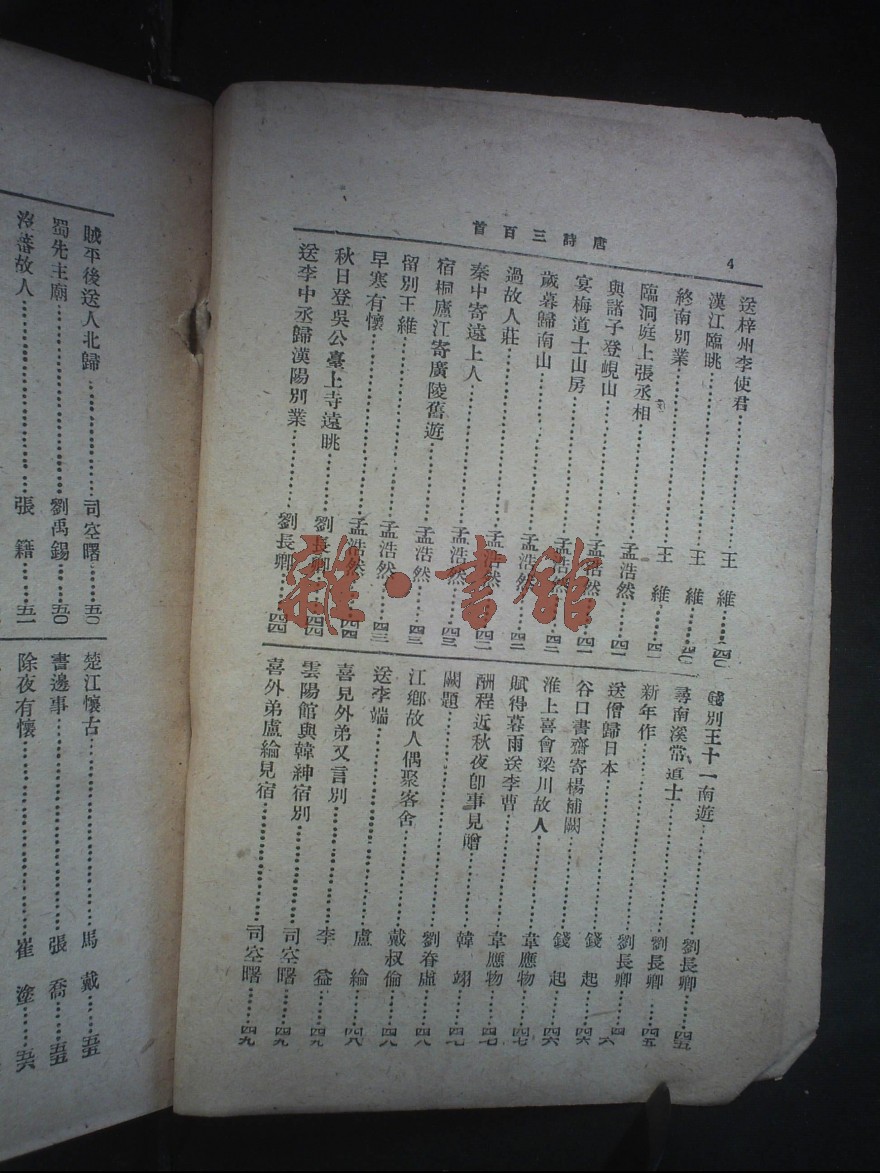 唐詩三百首
4
送梓州李使君……王 維……四〇
漢江臨眺……王 維……四〇
終南別業……王 維……四一
臨洞庭上張丞相……孟浩然……四一
與諸子登峴山……孟浩然……四一
宴梅道士山房……孟浩然……四二
歲暮歸南山……孟浩然……四二
過故人莊……孟浩然……四二
秦中寄遠上人……孟浩然……四三
宿桐廬江寄廣陵舊遊……孟浩然……四三
留別王維……孟浩然……四三
早寒有懷……孟浩然……四四
秋日登吳公臺上寺遠眺……劉長卿……四四
送李中丞歸漢陽別業……劉長卿……四四
餞別王十一南遊……劉長卿……四五
尋南溪常道士……劉長卿……四五
新年作……劉長卿……四六
送僧歸日本……錢 起……四六
谷口書齋寄楊補闕……錢 起……四六
淮上喜會梁川故人……韋應物……四七
賦得暮雨送李曹……韋應物……四七
酬程近秋夜卽事見贈……韓 翃……四七
闕題……劉眘虛……四八
江鄉故人偶聚客舍……戴叔倫……四八
送李端……盧 綸……四八
喜見外弟又言別……李 益……四九
雲陽館與韓紳宿別……司空曙……四九
喜外弟盧綸見宿……司空曙……四九
賊平後送人北歸……司空曙……五〇
蜀先主廟……劉禹錫……五〇
沒蕃故人……張 籍……五一
楚江懷古……馬 戴……五五
書邊事……張 喬……五五
除夜有懷……崔 塗……五六
雜·書館